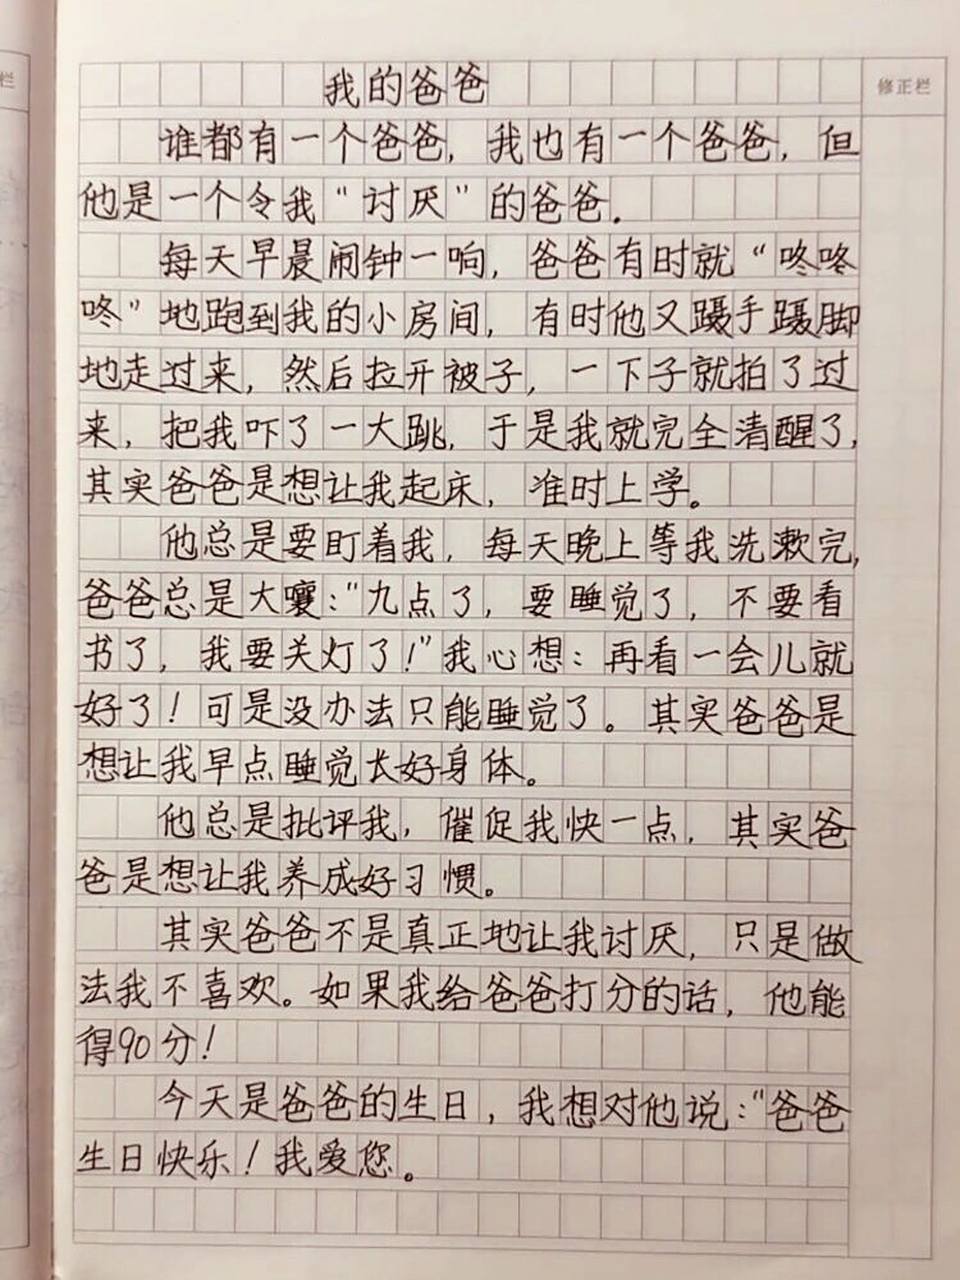 栏
修正栏
我的爸爸
谁都有一个爸爸，我也有一个爸爸，但
他是一个令我“讨厌”的爸爸.
每天早晨闹钟一响，爸爸有时就“咚咚
咚”地跑到我的小房间，有时他又蹑手蹑脚
地走过来，然后拉开被子，一下子就拍了过
来，把我吓了一大跳，于是我就完全清醒了，
其实爸爸是想让我起床，准时上学。
他总是要盯着我，每天晚上等我洗漱完，
爸爸总是大嚷：“九点了，要睡觉了，不要看
书了，我要关灯了！”我心想：再看一会儿就
好了！可是没办法只能睡觉了。其实爸爸是
想让我早点睡觉长好身体。
他总是批评我，催促我快一点，其实爸
爸是想让我养成好习惯。
其实爸爸不是真正地让我讨厌，只是做
法我不喜欢。如果我给爸爸打分的话，他能
得90分！
今天是爸爸的生日，我想对他说：“爸爸
生日快乐！我爱您。